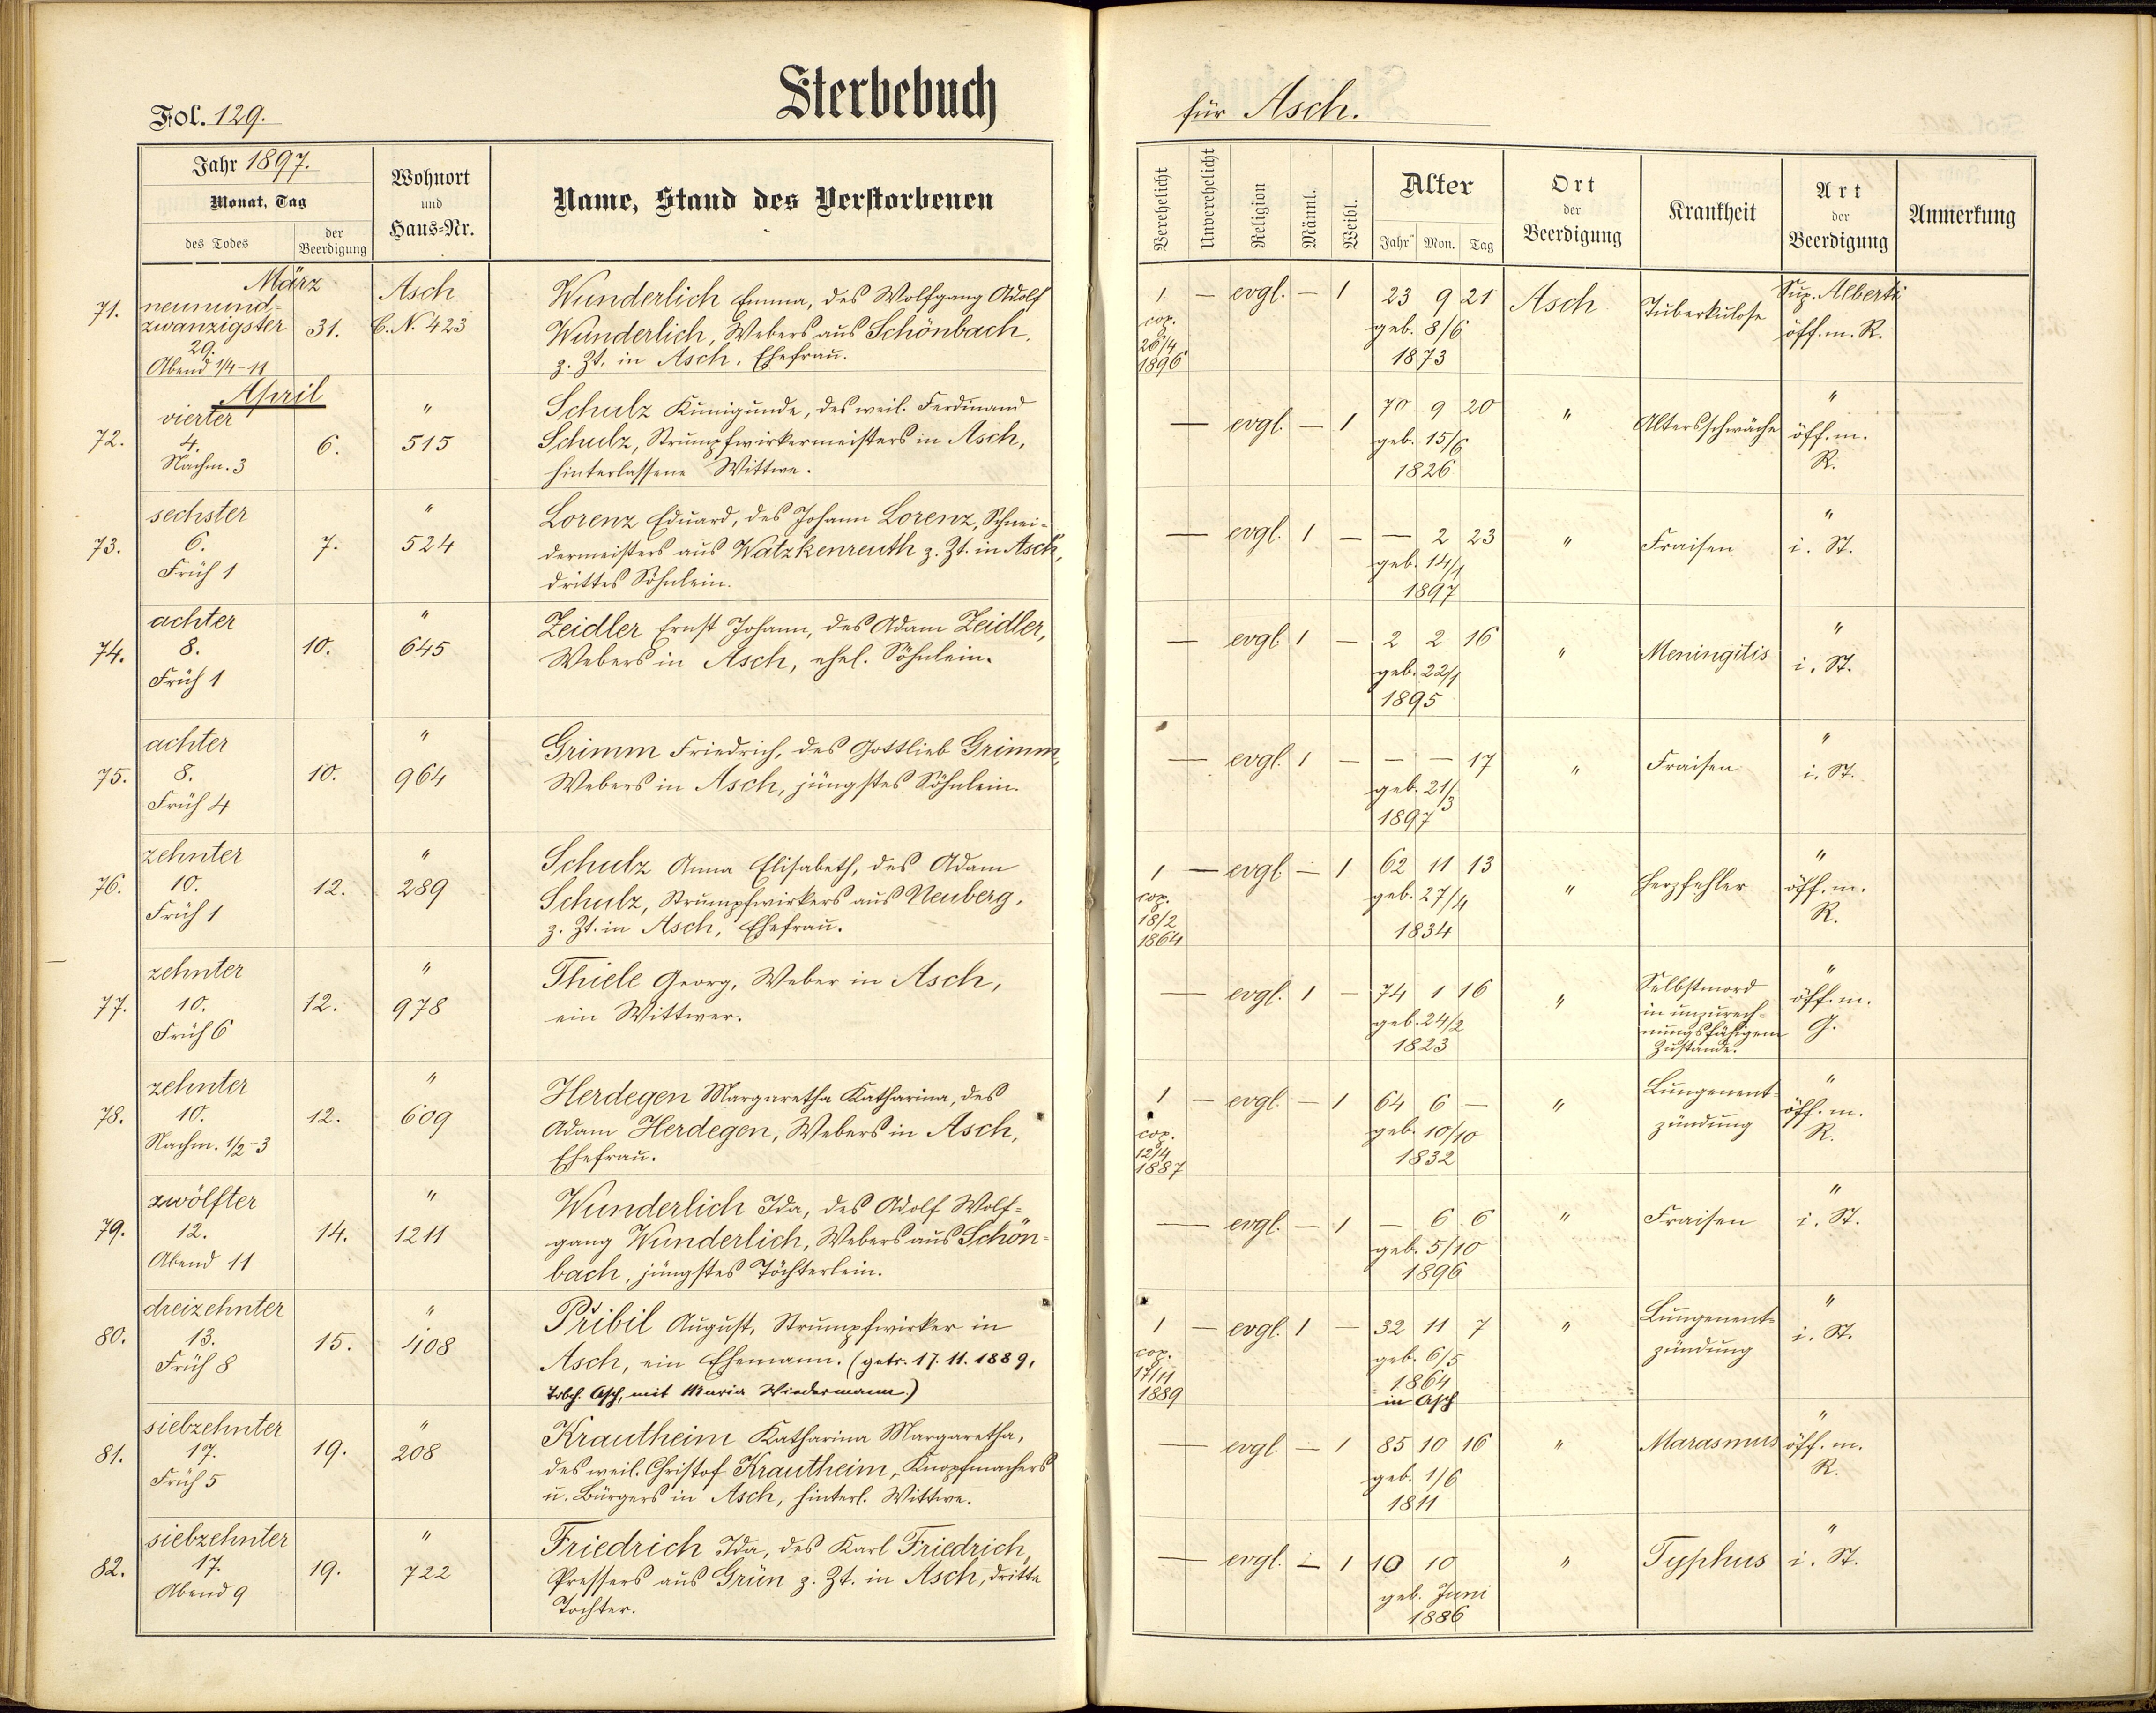 Sterbebuch
Fol. 129.
Jahr 1897.
Monat, Tag
des Todes
der Beerdigung
Wohnort
und
Haus=Nr.
Name, Stand des Verstorbenen
März
71.
neunund-
zwanzigster
29.
Abend 1/4-11
31.
Asch
C.N. 423
Wunderlich Emma, des Wolfgang Adolf
Wunderlich, Webers aus Schönbach,
z. Zt. in Asch, Ehefrau.
April
72.
vierter
4.
Nachm. 3
6.
"
515
Schulz Kunigunde, des weil. Ferdinand
Schulz, Strumpfwirkermeisters in Asch,
hinterlassene Wittwe.
73.
sechster
6.
Früh 1
7.
"
524
Lorenz Eduard, des Johann Lorenz, Schnei-
dermeisters aus Watzkenreuth z. Zt. in Asch,
drittes Söhnlein.
74.
achter
8.
Früh 1
10.
"
645
Zeidler Ernst Johann, des Adam Zeidler,
Webers in Asch, ehel. Söhnlein.
75.
achter
8.
Früh 4
10.
"
964
Grimm Friedrich, des Gottlieb Grimm,
Webers in Asch, jüngstes Söhnlein.
76.
zehnter
10.
Früh 1
12.
"
289
Schulz Anna Elisabeth, des Adam
Schulz, Strumpfwirkers aus Neuberg,
z. Zt. in Asch, Ehefrau.
77.
zehnter
10.
Früh 6
12.
"
978
Thiele Georg, Weber in Asch,
ein Wittwer.
78.
zehnter
10.
Nachm. 1/2-3
12.
"
609
Herdegen Margaretha Katharina, des
Adam Herdegen, Webers in Asch,
Ehefrau.
79.
zwölfter
12.
Abend 11
14.
"
1211
Wunderlich Ida, des Adolf Wolf=
gang Wunderlich, Webers aus Schön-
bach, jüngstes Töchterlein.
80.
dreizehnter
13.
Früh 8
15.
"
408
Přibil August, Strumpfwirker in
Asch, ein Ehemann. (getr. 17. 11. 1889,
Trbch. Asch, mit Maria Wiedermann.)
81.
siebzehnter
17.
Früh 5
19.
"
208
Krautheim Katharina Margaretha,
des weil. Christof Krautheim, Knopfmachers
u. Bürgers in Asch, hinterl. Wittwe.
82.
siebzehnter
17.
Abend 9
19.
"
722
Friedrich Ida, des Karl Friedrich,
Pressers aus Grün z. Zt. in Asch, dritte
Tochter.
für Asch.
Verehelicht
Unverehelicht
Religion
Männl.
Weibl.
Alter
Jahr Mon. Tag
Ort
der
Beerdigung
Krankheit
Art
der
Beerdigung
Anmerkung
1 — evgl. — 1 23 9 21 Asch Tuberkulose Sup. Alberti
cop.
26/4
1896
geb. 8/6
1873
öff. m. R.
— evgl. — 1 70 9 20 " Altersschwäche "
geb. 15/6
1826
öff. m.
R.
— evgl. 1 — — 2 23 " Fraisen "
geb. 14/1
1897
i. St.
— evgl. 1 — 2 2 16 " Meningitis "
geb. 22/1
1895
i. St.
— evgl. 1 — — — 17 " Fraisen "
geb. 21/3
1897
i. St.
1 — evgl. — 1 62 11 13 " Herzfehler "
cop.
18/2
1864
geb. 27/4
1834
öff. m.
R.
— evgl. 1 — 74 1 16 "
geb. 24/2
1823
Selbstmord
in unzurech-
nungsfähigem
Zustande.
"
öff. m.
G.
1 — evgl. — 1 64 6 — "
cop.
12/4
1887
geb. 10/10
1832
Lungenent-
zündung
"
öff. m.
R.
— evgl. — 1 — 6 6 " Fraisen "
geb. 5/10
1896
i. St.
1 — evgl. 1 — 32 11 7 "
cop.
17/11
1889
geb. 6/5
1864
in Asch
Lungenent-
zündung
"
i. St.
— evgl. — 1 85 10 16 " Marasmus "
geb. 1/6
1811
öff. m.
R.
— evgl. — 1 10 10 " Typhus "
geb. Juni
1886
i. St.